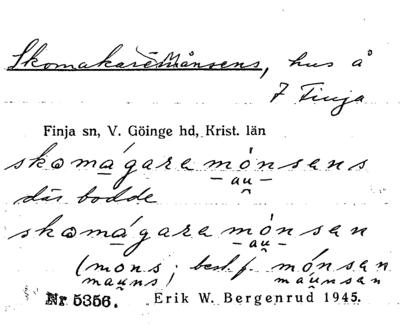 Skomakare Månsens, hus å
7 Finja
Finja sn, V. Göinge hd, Krist. län
skomágara mónsens
– au –
där bodde
skomágara mónsan
– au –
(mons; best. f. mónsan
mauns) maunsan
Nr 5356. Erik W. Bergenrud 1945.